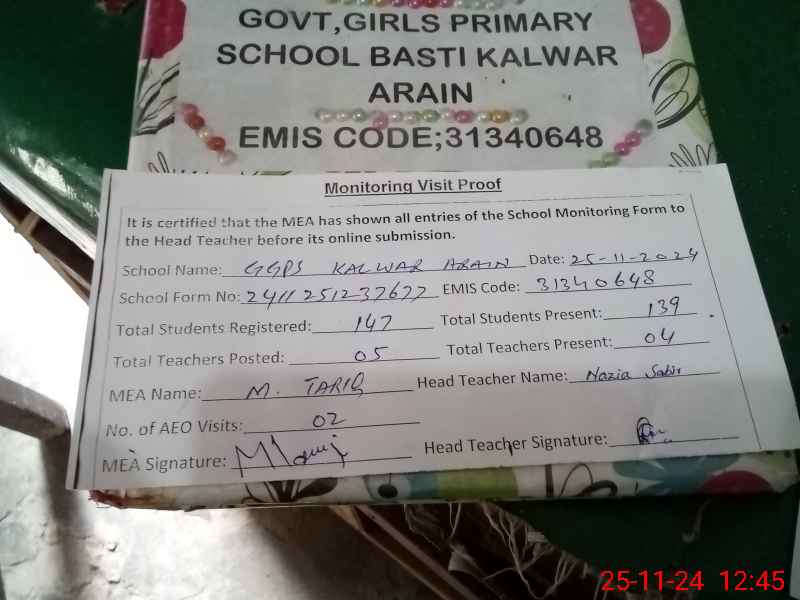 GOVT,GIRLS PRIMARY
SCHOOL BASTI KALWAR
ARAIN
EMIS CODE;31340648
Monitoring Visit Proof
It is certified that the MEA has shown all entries of the School Monitoring Form to
the Head Teacher before its online submission.
School Name: GGPS KALWAR ARAIN Date: 25-11-2024
School Form No: 2411251237677 EMIS Code: 31340648
Total Students Registered: 147 Total Students Present: 139
Total Teachers Posted: 05 Total Teachers Present: 04
MEA Name: M. TARIQ Head Teacher Name: Nazia Sabir
No. of AEO Visits: 02
MEA Signature: Head Teacher Signature:
25-11-24 12:45